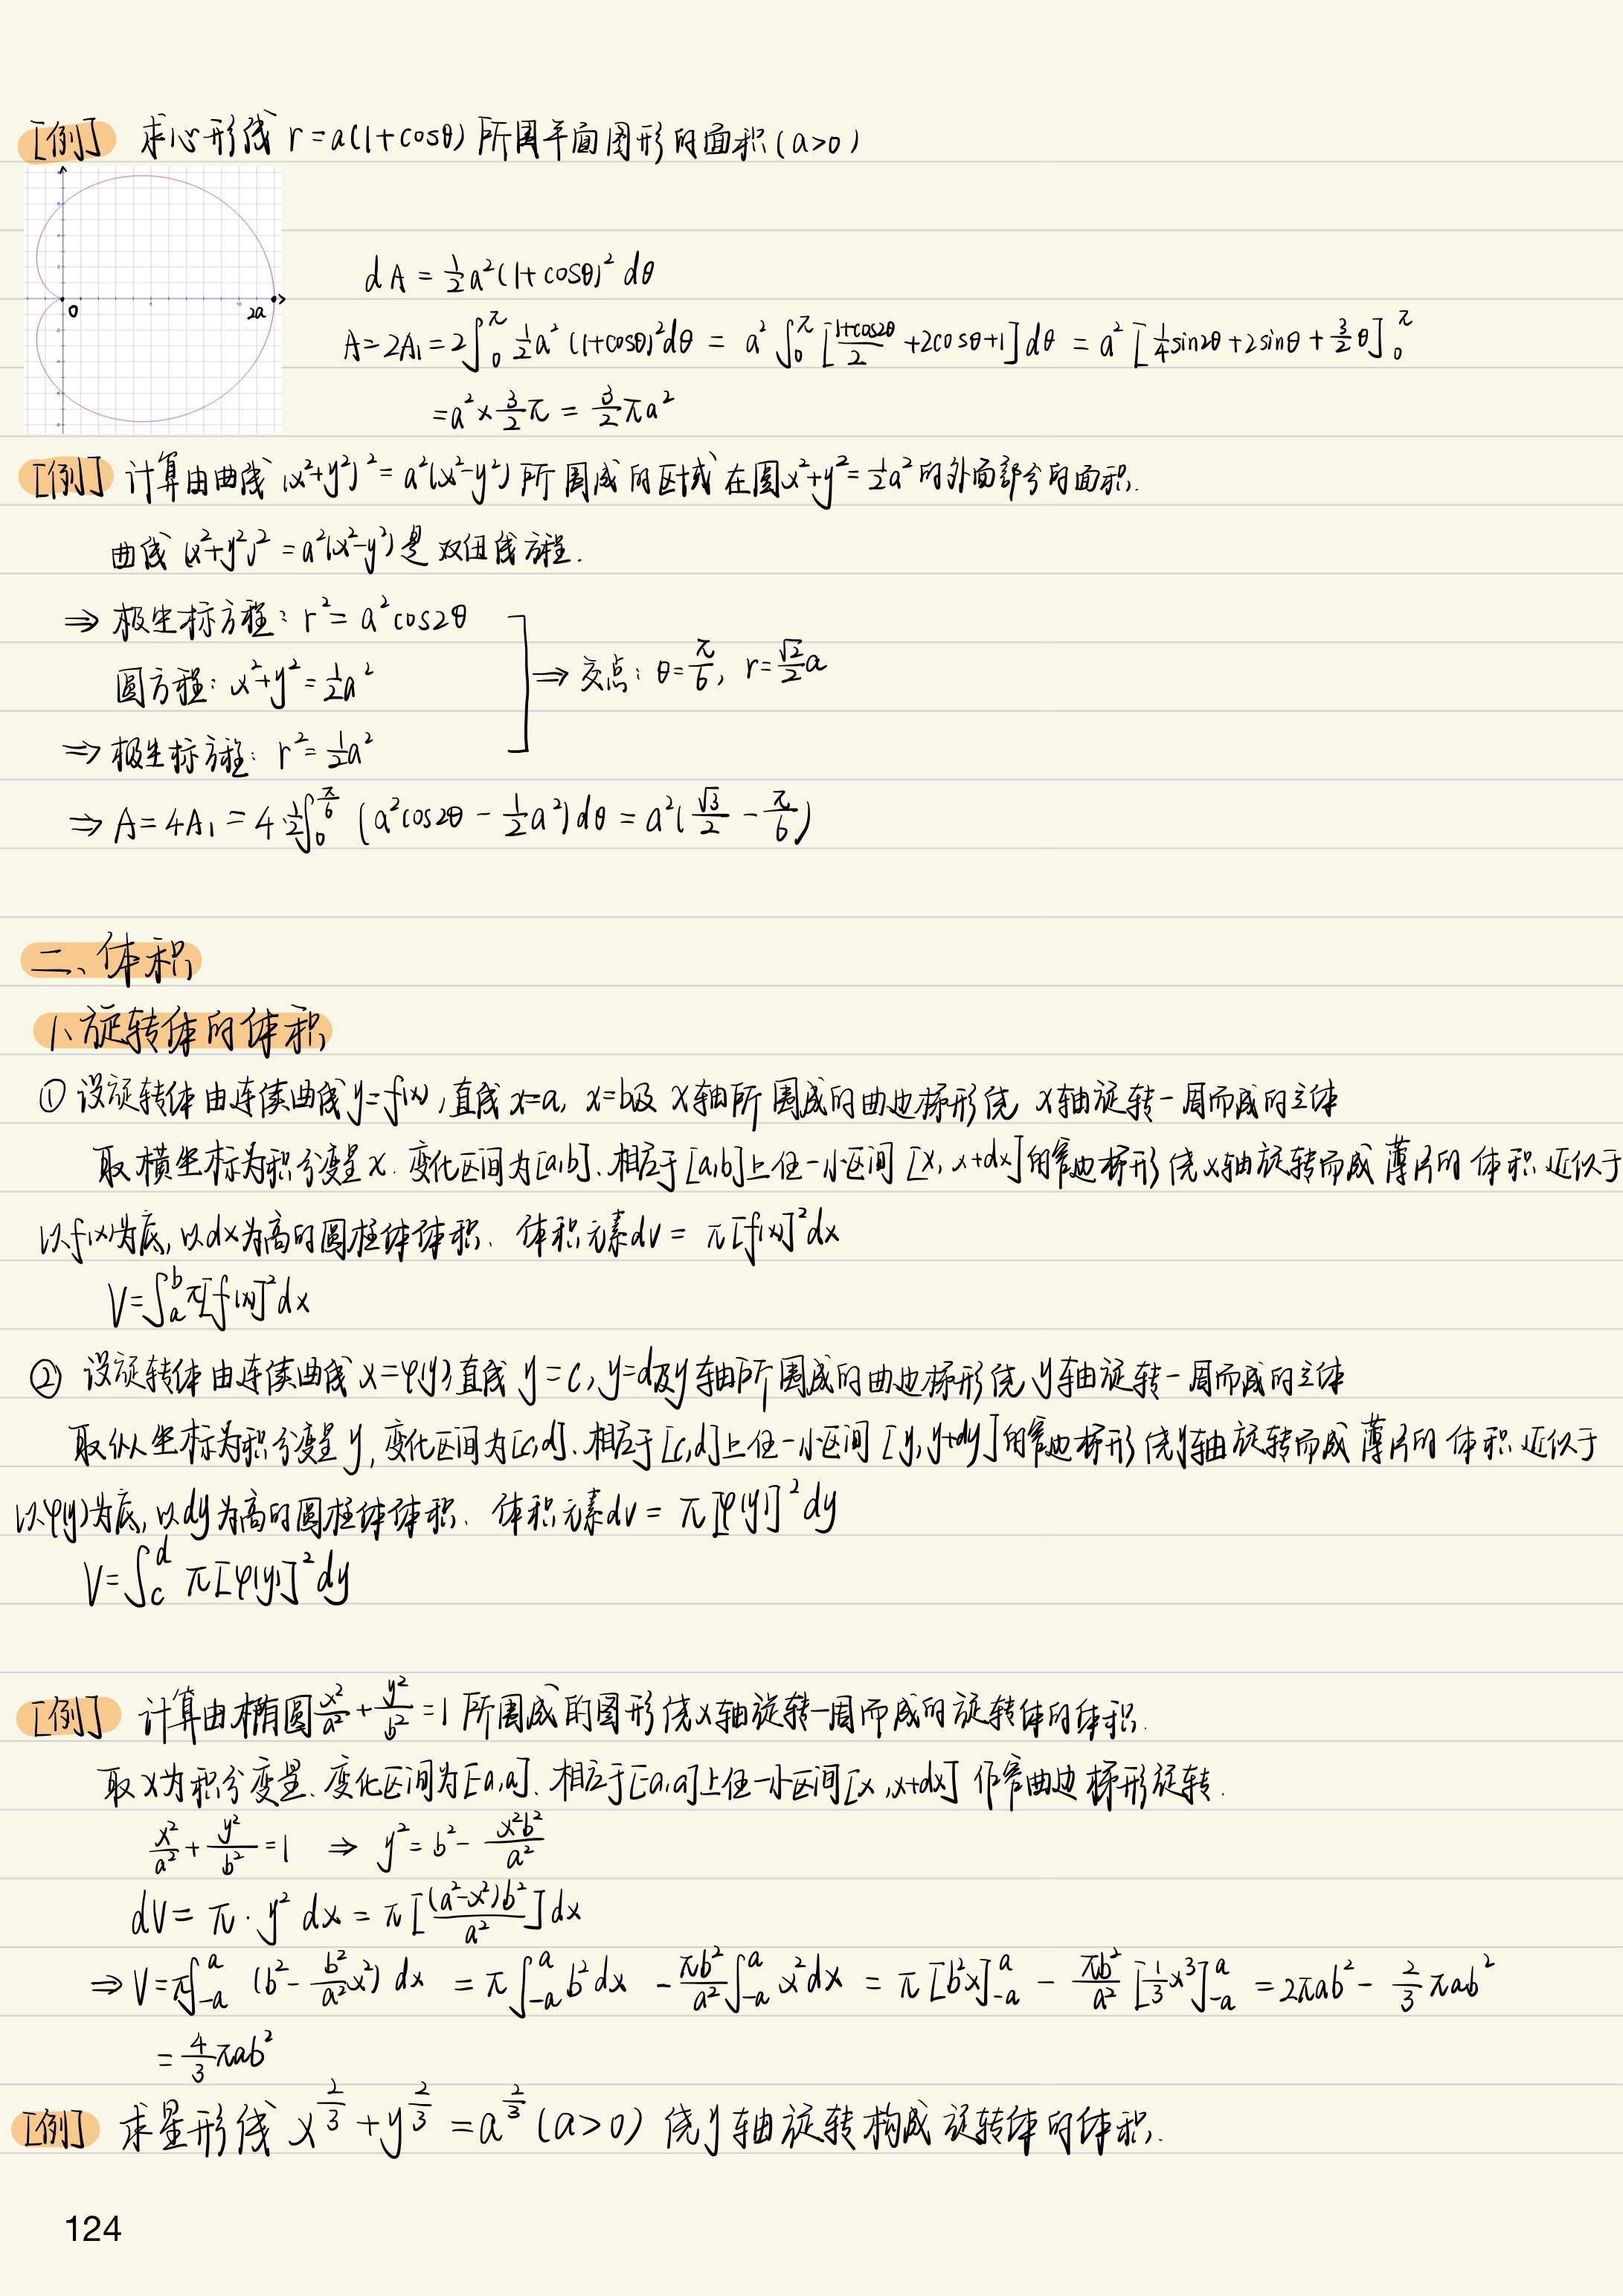 [例] 求心形线 r=a(1+cosθ) 所围平面图形的面积(a>0)
0 2a
dA = 1/2 a²(1+cosθ)² dθ
A=2A₁=2∫₀^π 1/2 a² (1+cosθ)² dθ = a² ∫₀^π [(1+cos2θ)/2 +2cosθ+1] dθ = a² [1/4 sin2θ+2sinθ+3/2 θ]₀^π
=a²×3/2 π = 3/2 πa²
[例] 计算由曲线 (x²+y²)²=a²(x²-y²) 所围成的区域在圆x²+y²=1/2 a²的外面部分的面积.
曲线 (x²+y²)²=a²(x²-y²)是双纽线方程.
⇒ 极坐标方程: r²= a²cos2θ
圆方程: x²+y²=1/2 a²
⇒ 交点: θ=π/6, r=√2/2 a
⇒ 极坐标方程: r²=1/2 a²
⇒ A=4A₁=4·1/2∫₀^(π/6) (a²cos2θ - 1/2 a²)dθ = a²(√3/2 - π/6)
二、体积
1、旋转体的体积
① 设旋转体由连续曲线y=f(x),直线x=a, x=b及 x轴所围成的曲边梯形绕 x轴旋转一周而成的立体
取横坐标为积分变量x. 变化区间为[a,b]. 相应于[a,b]上任一小区间 [x, x+dx]的窄边梯形绕x轴旋转而成薄片的体积近似于
以f(x)为底,以dx为高的圆柱体体积. 体积元素dv= π[f(x)]²dx
V=∫ₐᵇπ[f(x)]²dx
② 设旋转体由连续曲线x=φ(y)直线 y=c, y=d及y轴所围成的曲边梯形绕y轴旋转一周而成的立体
取纵坐标为积分变量y, 变化区间为[c,d]. 相应于[c,d]上任一小区间 [y,y+dy]的窄边梯形绕y轴旋转而成薄片的体积近似于
以φ(y)为底,以dy为高的圆柱体体积. 体积元素dv= π[φ(y)]²dy
V=∫_c^d π[φ(y)]²dy
[例] 计算由椭圆x²/a²+y²/b²=1 所围成的图形绕x轴旋转一周而成的旋转体的体积.
取x为积分变量. 变化区间为[-a,a]. 相应于[-a,a]上任一小区间[x,x+dx] 作窄曲边梯形旋转.
x²/a²+y²/b²=1 ⇒ y²=b²- x²b²/a²
dV= π·y² dx = π[(a²-x²)b²/a²]dx
⇒ V=π∫₋ₐᵃ (b²- b²/a² x²) dx = π∫₋ₐᵃ b²dx - πb²/a² ∫₋ₐᵃ x²dx = π[b²x]₋ₐᵃ - πb²/a² [1/3 x³]₋ₐᵃ = 2πab² - 2/3 πab²
= 4/3 πab²
[例] 求星形线 x^(2/3)+y^(2/3)=a^(2/3) (a>0) 绕y轴旋转构成旋转体的体积.
124